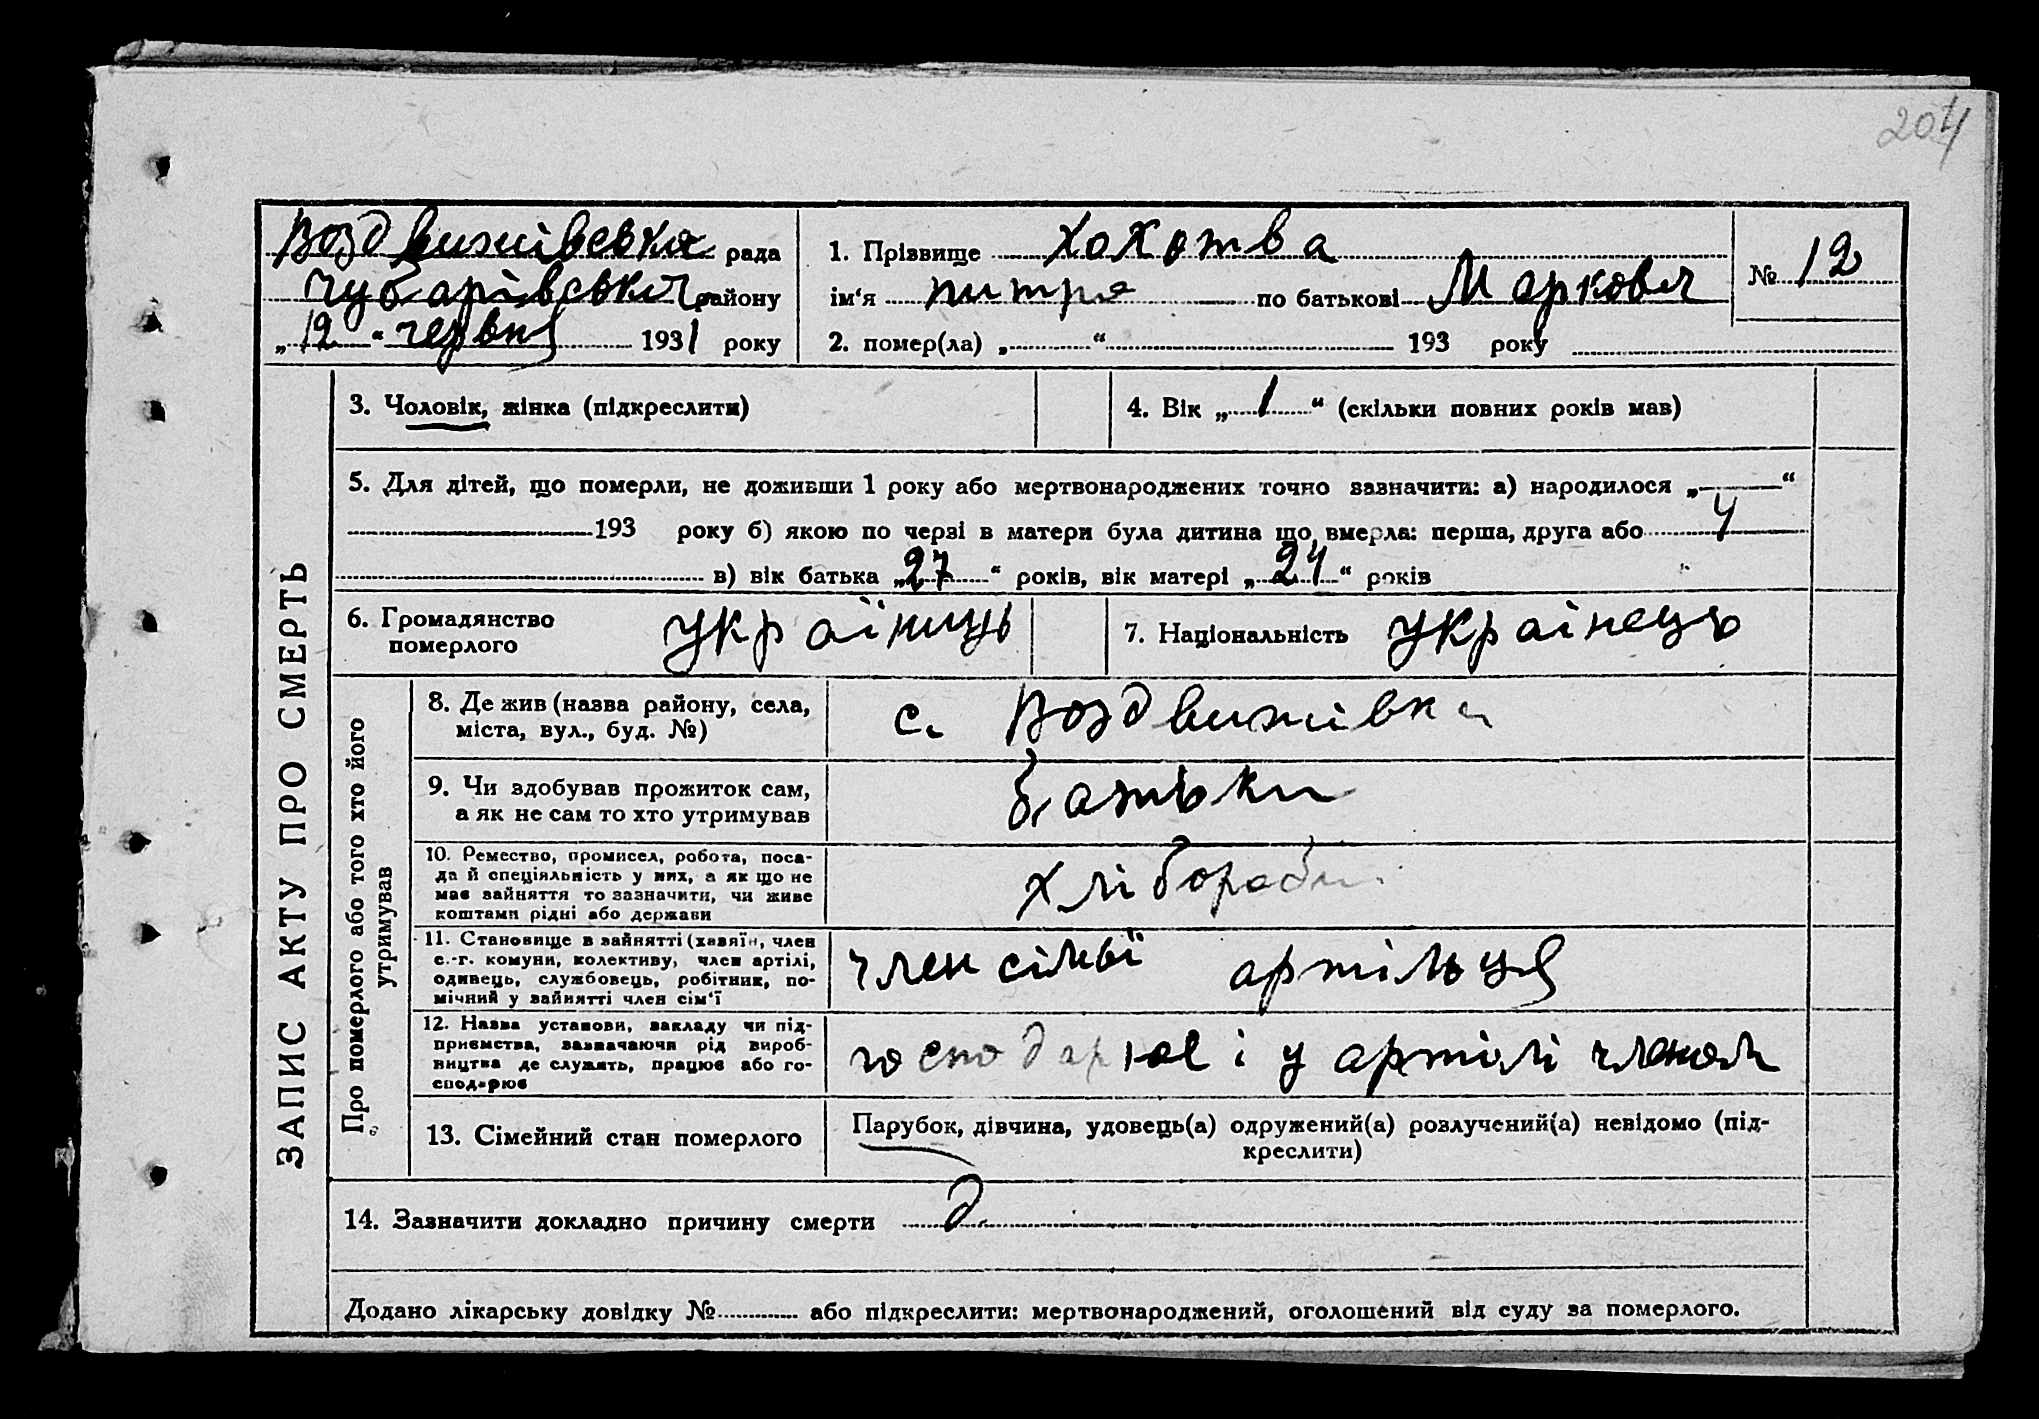 204
Воздвижівська рада
Чубарівського району
„12“ червня 1931 року
1. Прізвище Хохотва
ім‘я Питро по батькові Маркович
№ 12
2. помер(ла) „ “ 193 року
ЗАПИС АКТУ ПРО СМЕРТЬ
3. Чоловік, жінка (підкреслити)
4. Вік „1“ (скільки повних років мав)
5. Для дітей, що померли, не доживши 1 року або мертвонароджених точно зазначити: а) народилося „—“
193 року б) якою по черзі в матери була дитина що вмерла: перша, друга або 4
в) вік батька „27“ років, вік матері „24“ років
6. Громадянство
померлого
україниць
7. Національність українець
Про померлого або того хто його
утримував
8. Де жив (назва району, села,
міста, вул., буд. №)
с. Воздвижівки
9. Чи здобував прожиток сам,
а як не сам то хто утримував
батьки
10. Ремество, промисел, робота, поса-
да й спеціяльність у них, а як що не
має зайняття то зазначити, чи живе
коштами рідні або держави
хлібороби
11. Становище в зайнятті (хазяїн, член
с.-г. комуни, колективу, член артілі,
одинець, службовець, робітник, по-
мічний у зайнятті член сім‘ї
член сімьї артільця
12. Назва установи, закладу чи під-
приємства, зазначаючи рід вироб-
ництва де служать, працює або го-
сподарює
господарює і у артілі членом
13. Сімейний стан померлого
Парубок, дівчина, удовець(а) одружений(а) розлучений(а) невідомо (під-
креслити)
14. Зазначити докладно причину смерти
Додано лікарську довідку № або підкреслити: мертвонароджений, оголошений від суду за померлого.